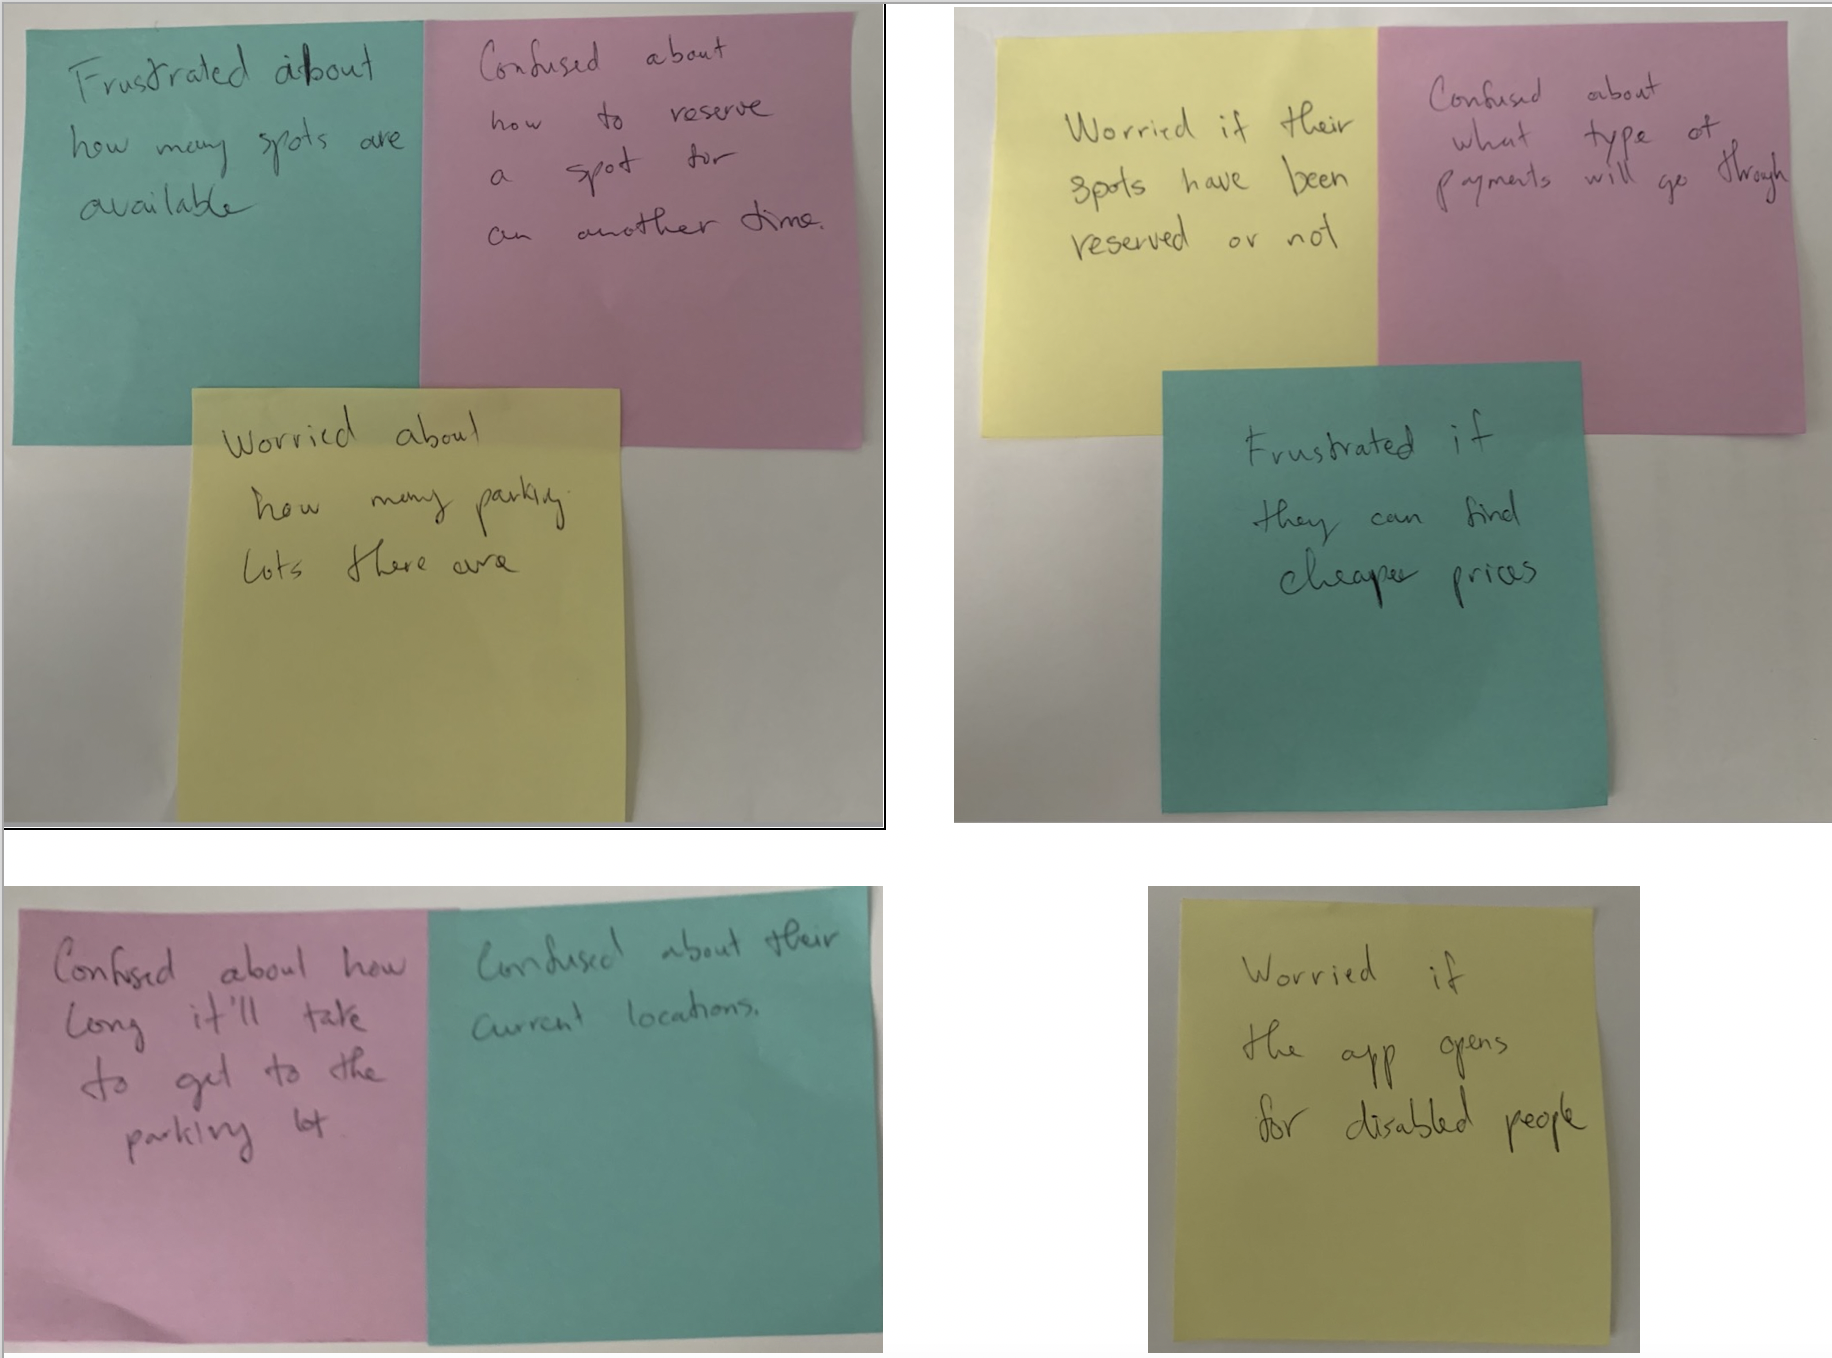 Frustrated about
how many spots are
available
Confused about
how to reserve
a spot for
an another time.
Worried about
how many parking
lots there are
Worried if their
spots have been
reserved or not
Confused about
what type of
payments will go through
Frustrated if
they can find
cheaper prices
Confused about how
long it'll take
to get to the
parking lot
Confused about their
current locations.
Worried if
the app opens
for disabled people